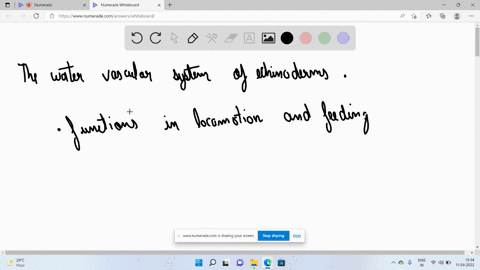 Numerade
Numerade Whiteboard
https://www.numerade.com/answers/whiteboard/
The water vascular system of echinoderms .
• functions in locamotion and feeding
www.numerade.com is sharing your screen.
Stop sharing
Hide
29°C
ENG
IN
15:34